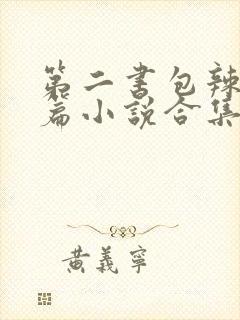 第二书包辣
篇小说合集
黄义宁